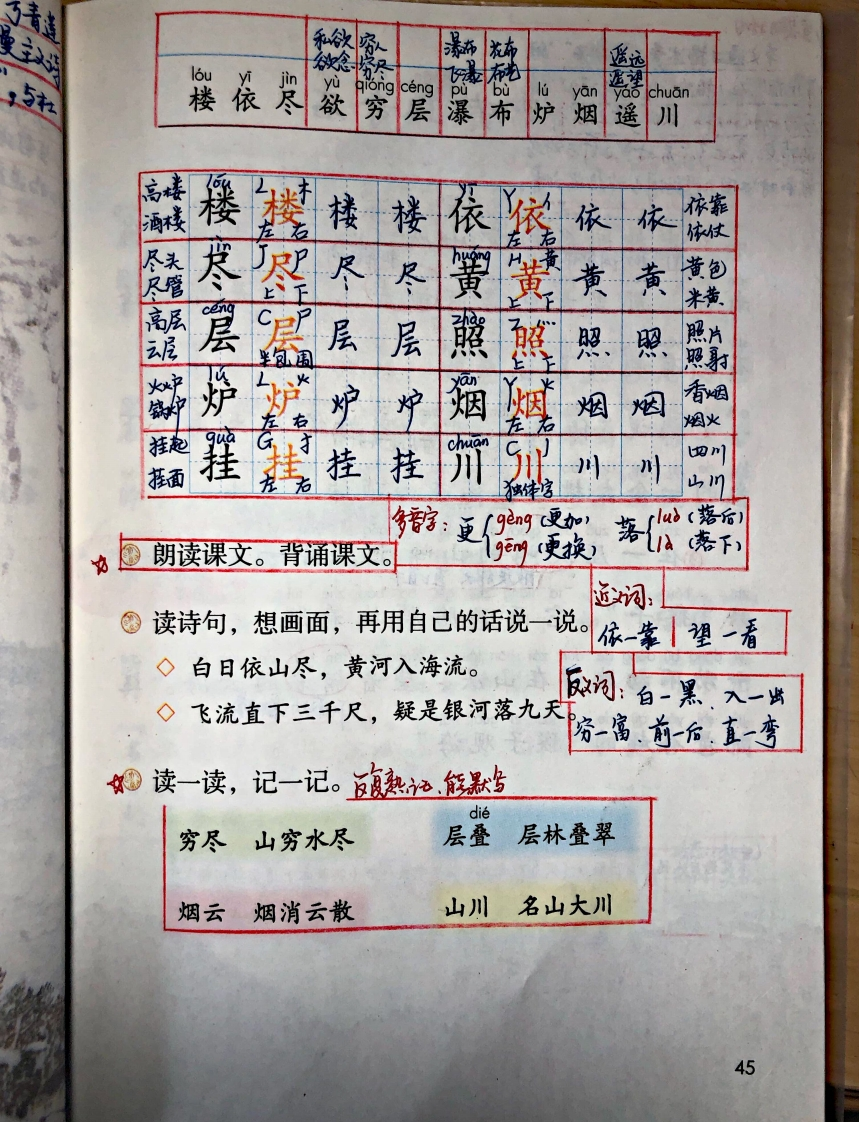 青莲
主义诗
，与杜
私欲 穷人 瀑布 花布 遥远
欲念 穷尽 飞瀑 遥望
lóu yī jìn yù qióng céng pù bù lú yān yáo chuān
楼 依 尽 欲 穷 层 瀑 布 炉 烟 遥 川
高楼 lóu L 木 yī Y 亻 依靠
酒楼 楼 楼 楼 楼 依 依 依 依 依仗
左 右 左 右
尽头 jìn J 尸 huáng H 黄 黄色
尽管 尽 尽 尽 尽 黄 黄 黄 黄 米黄
上 下 上 下
高层 céng C 尸 zhào Z 灬 照片
云层 层 层 层 层 照 照 照 照 照射
半包围 上 下
火炉 lú L 火 yān Y 火 香烟
锅炉 炉 炉 炉 炉 烟 烟 烟 烟 烟火
左 右 左 右
挂起 guà G 扌 chuān C 丿 四川
挂面 挂 挂 挂 挂 川 川 川 川 山川
左 右 独体字
多音字： 更 gèng (更加) 落 luò (落后)
gēng (更换) là (落下)
朗读课文。背诵课文。
近义词：
读诗句，想画面，再用自己的话说一说。
依—靠 望—看
白日依山尽，黄河入海流。
反义词： 白—黑、入—出
飞流直下三千尺，疑是银河落九天。
穷—富 前—后 直—弯
读一读，记一记。 反复熟记、能默写
dié
穷尽 山穷水尽 层叠 层林叠翠
烟云 烟消云散 山川 名山大川
45